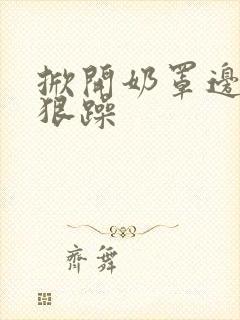 掀開奶罩邊
狠躁
齊舞